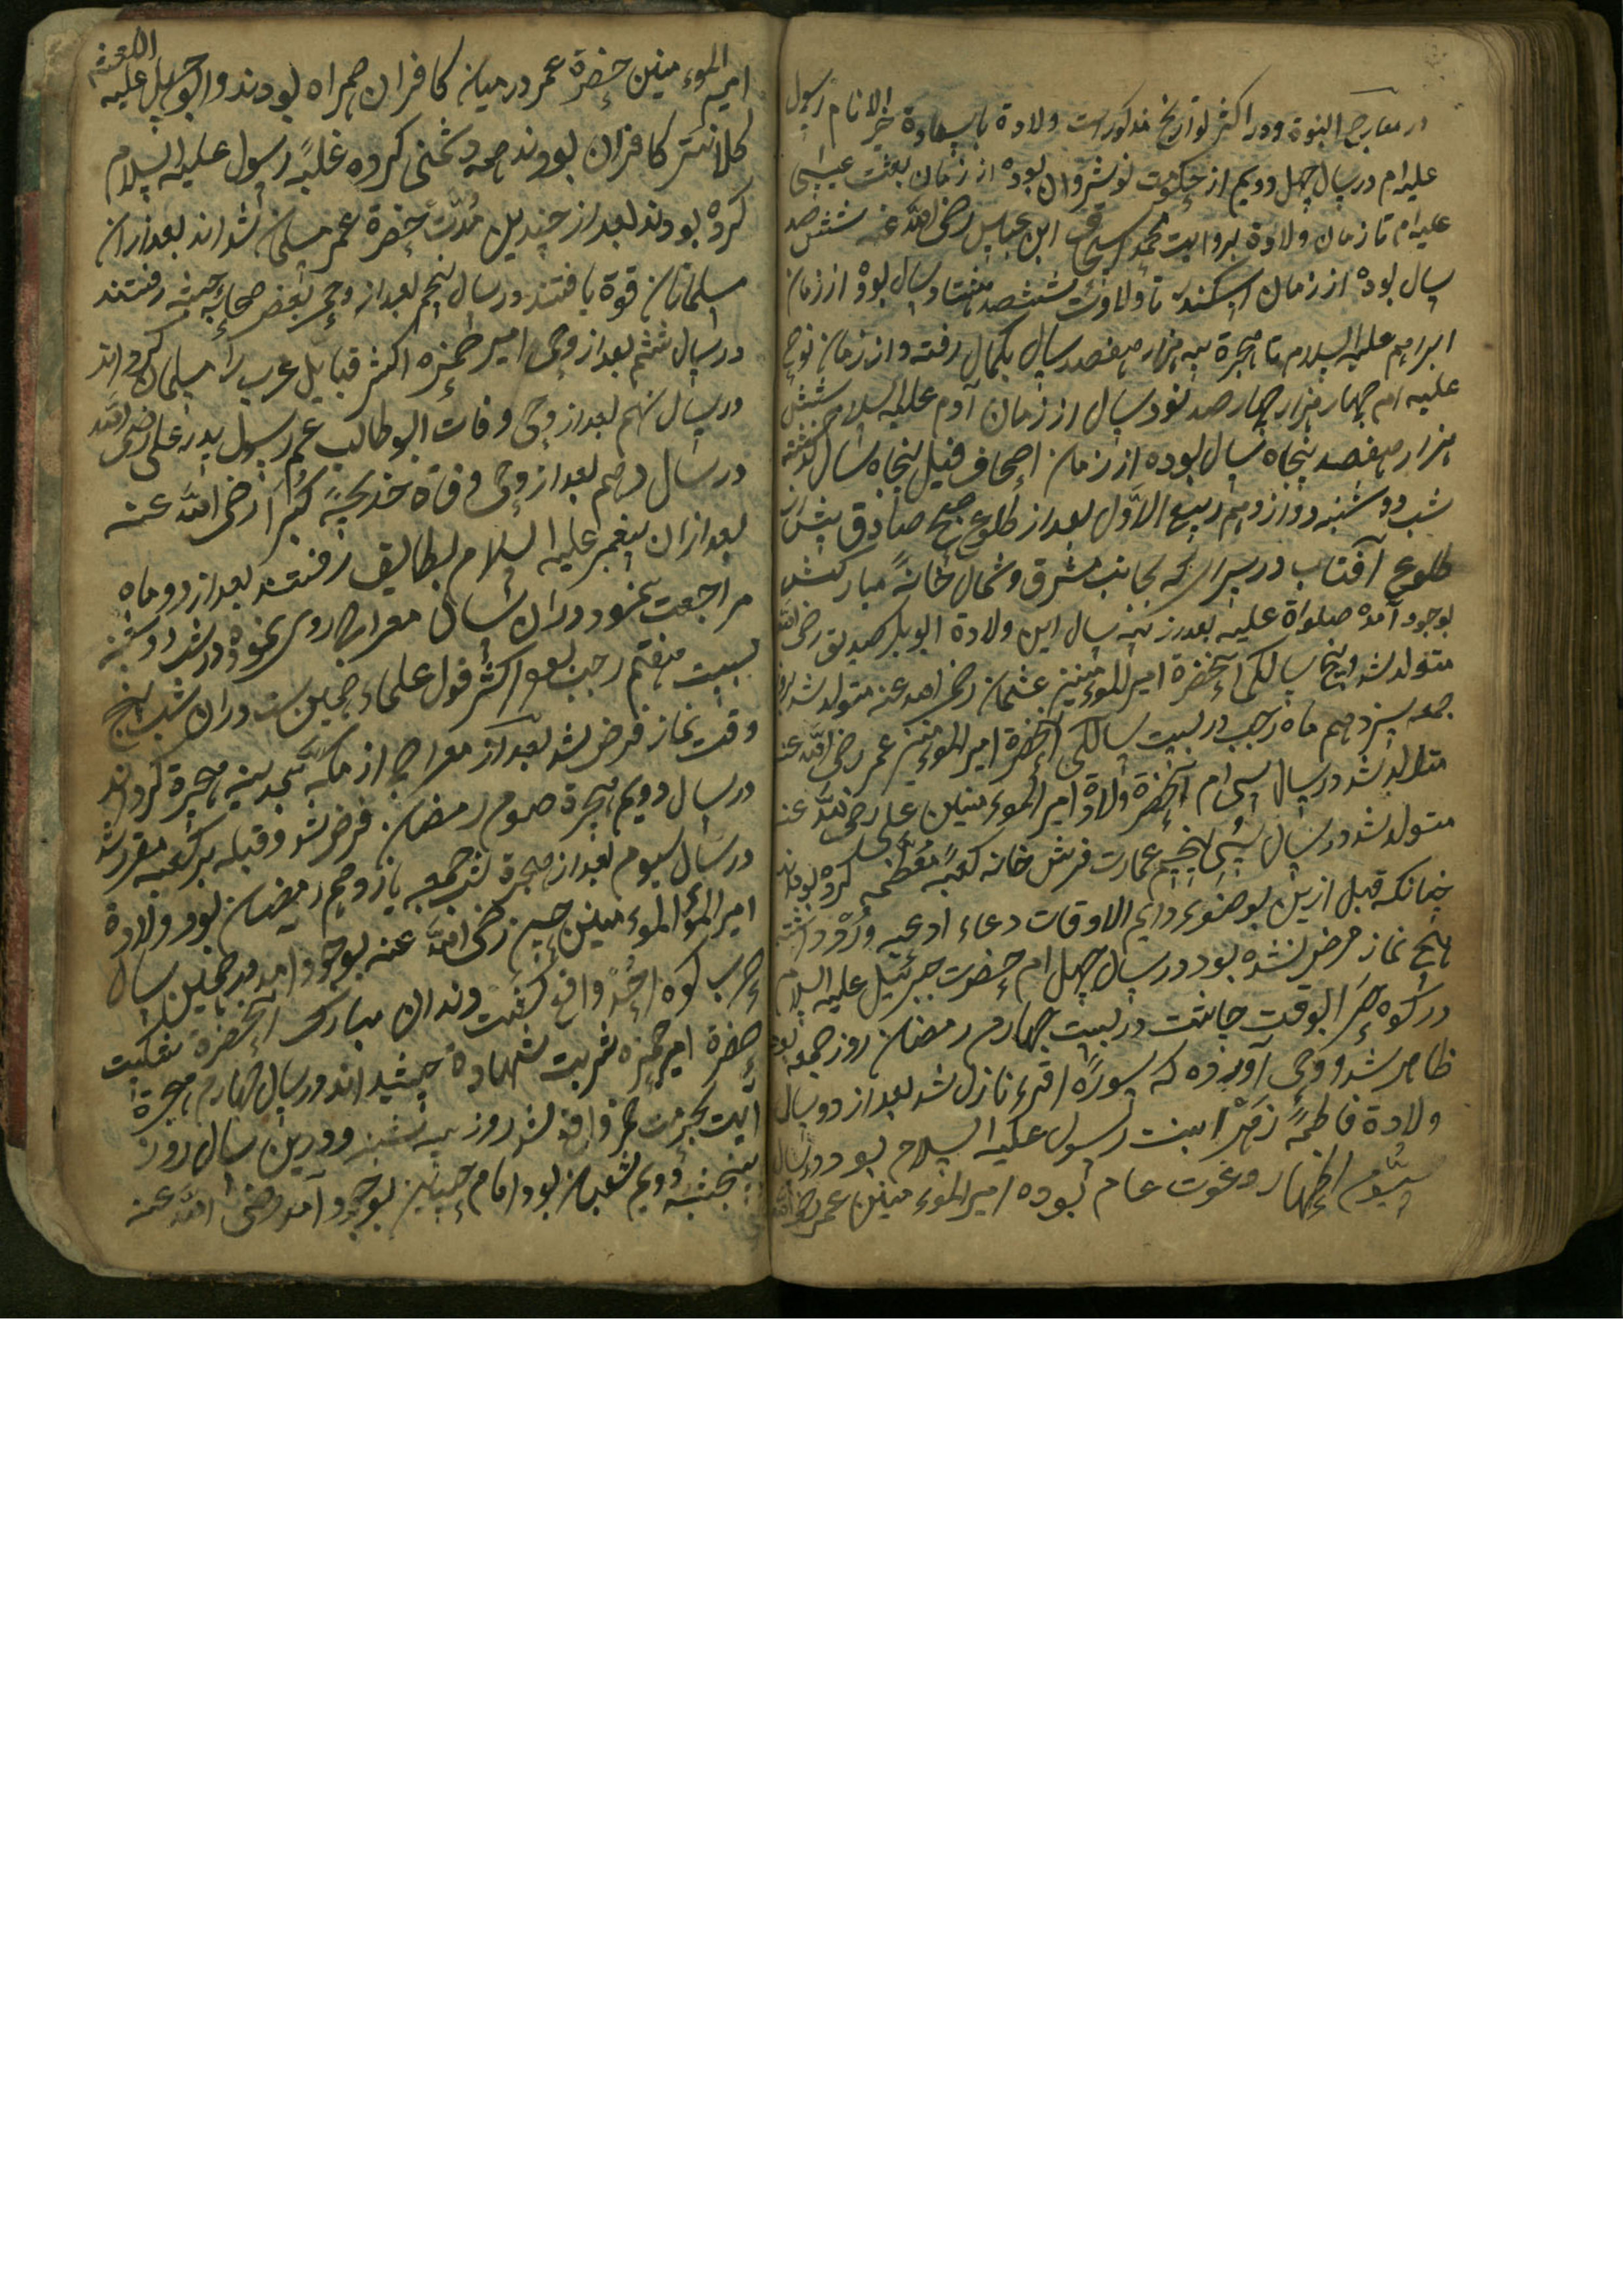 در معارج النبوة ودر اکثر تواریخ مذکورست ولادة با سعادة خیر الانام رسول
علیه‌ام در سال چهل ودویم از حکومت نوشیروان بوده از زمان بعثت عیسی
علیه‌ام تا زمان ولادة بروایت محمد اسحق ابن عباس رضی الله عنه ششصد
سال بوده از زمان اسکندر تا ولادت ششصد هفتاد سال بوده از زمان
ابراهیم علیه السلام تا هجرة سه هزار هفصد سال بکمال رفته واز زمان نوح
علیه‌ام چهار هزار چهار صد نود سال از زمان آدم علیه السلام شش
هزار هفصد پنجاه سال بوده از زمان اصحاف فیل پنجاه سال گذشته
شب دوشنبه دوازدهم ربیع الاوّل بعد از طلوع صبح صادق پیش از
طلوع آفتاب در سرای که بجانب مشرق وشمال خانهٔ مبارکش
بوجود آمده صلواة علیه بعد از سال این ولادة ابوبکر صدیق رضی الله
متولد شد وپنج سالکی آنحضرة امیر المؤمنین عثمان رضی الله عنه متولد شد روز
جمعه سیزدهم ماه رجب در بیست سالکی آنحضرة امیر المؤمنین عمر رضی الله عنه
متولد شد در سال سی‌ام آنحضرة ولادة امیر المؤمنین علی رضی الله عنه
متولد شد در سال سی پنجم عمارت قریش خانه کعبهٔ معظّمه کرده بودند
چنانکه قبل ازین بوضوی دایم الاوقات دعاء ادعیه ورد داشته
هیچ نماز فرض نشده بود در سال چهل‌ام حضرت جبرئیل علیه السلام
در کوه حرا بوقت چاشت در بیست چهارم رمضان روز جمعه بود
ظاهر شد ووحی آورده که سورهٔ اقرء نازل شد بعد از دو سال
ولادة فاطمهٔ زهرا بنت رسول علیه السلام بود در سال
سیّوم اظهار دعوت عام بوده امیر المؤمنین عمر رضی الله
امیر المؤمنین حضرة عمر در میان کافران همراه بودند وابوجهل علیه اللعنه
کلانتر کافران بودند همه دشمنی کرده غلبهٔ رسول علیه السلام
کرده بودند بعد از چندین مدّت حضرة عمر مسلمان شداند بعد ازان
مسلمانان قوة یافتند در سال پنجم بعد از وحی بعضی صحابه بحبشه رفتند
در سال ششم بعد از وحی امیر حمزه اکثر قبایل عرب را مسلمان کرداند
در سال نهم بعد از وحی وفات ابوطالب عم رسول پدر علی رضی الله
در سال دهم بعد از وحی وفاة خدیجهٔ کبرا رضی الله عنه
بعد ازان پیغمبر علیه السلام بطایف رفتند بعد از دو ماه
مراجعت نمود در آن سال معراج روی نموده در شب دوشنبه
بیست هفتم رجب بود اکثر قول علماء همین ست در آن شب پنج
وقت نماز فرض شد بعد از معراج از مکّه بمدینه هجرة کرداند
در سال دویم هجرة صوم رمضان فرض شد وقبله بر کعبه مقرر شد
در سال سیوم بعد از هجرة شب جمعه پازدهم رمضان بود ولادة
امیر المؤ المؤمنین حسن رضی الله عنه بوجود آمد در همین سال
حرب کوه احُد واقع گشت دندان مبارک آنحضرة شکست
حضرة امیر حمزه شربت شهادة چشید اند در سال چهارم هجرة
آیت بحرمت خمر واقع شد روز سه شنبه ودرین سال روز
پنجشنبه دویم شعبان بود امام حسین بوجود آمد رضی الله عنه